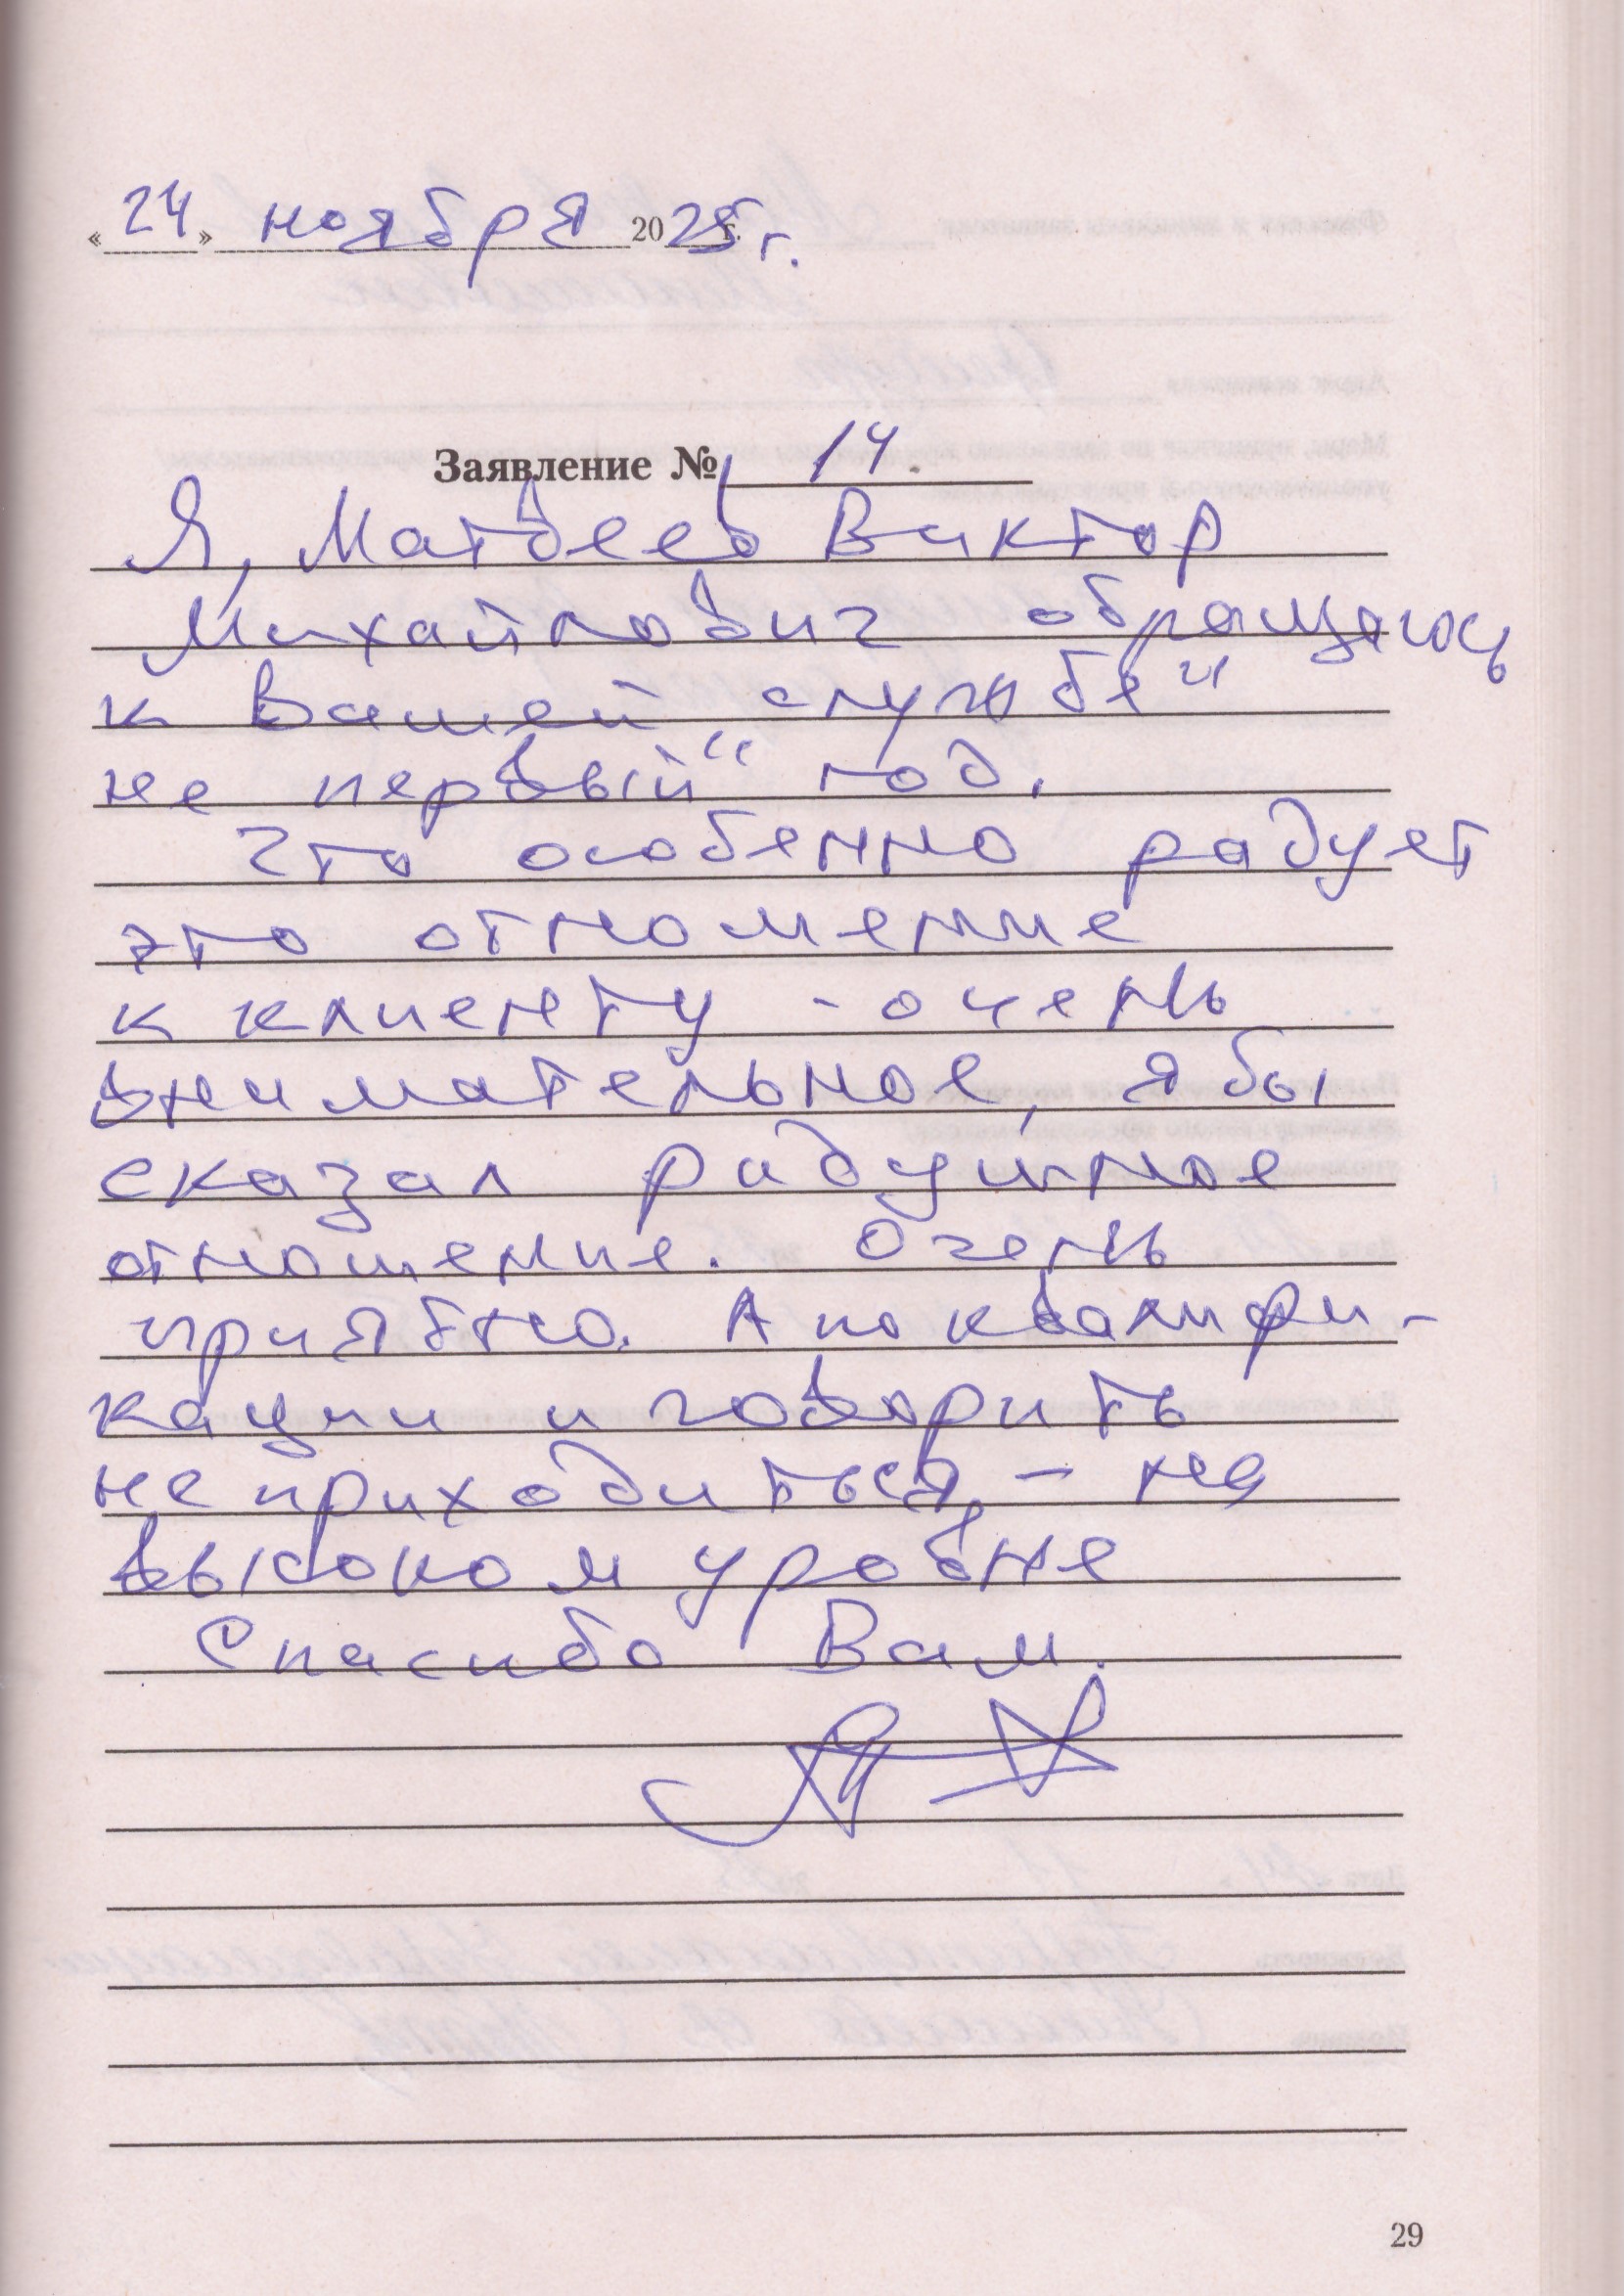 «24» ноября 2025 г.
Заявление № 14.
Я, Матвеев Виктор
Михайлович обращаюсь
к Вашей службе "
не первый" год.
Что особенно радует
это отношение
к клиенту - очень
внимательное, я бы
сказал радушное
отношение. Очень
приятно. А по квалифи-
кации и говорить
не приходиться, - на
высоком уровне
Спасибо Вам.
29